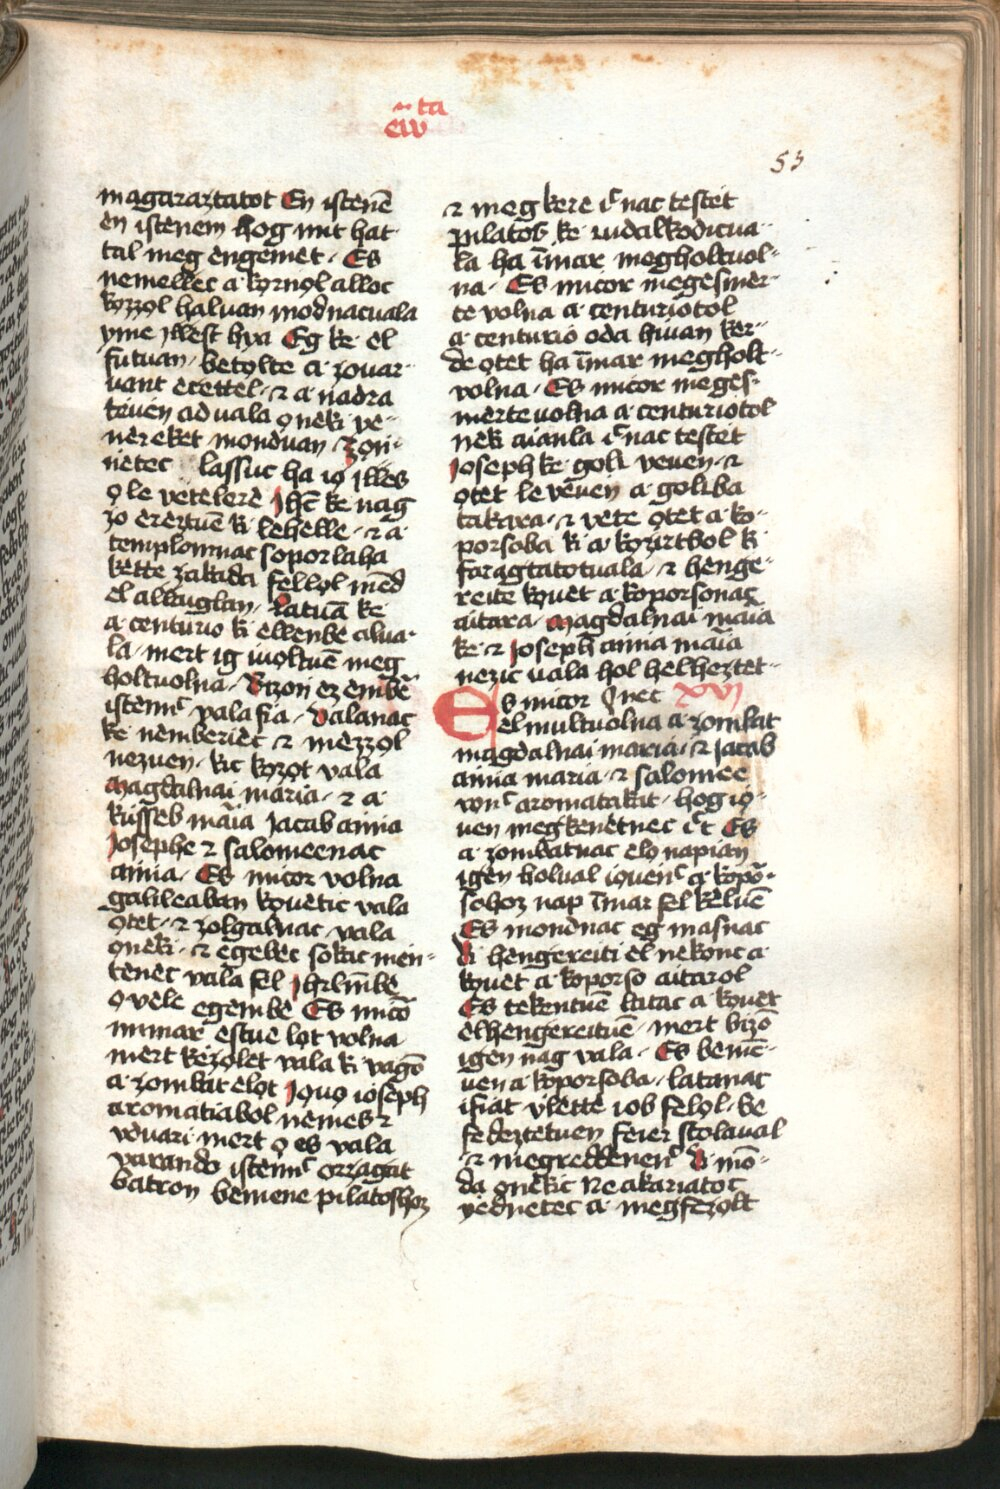 53
magaraztatot En istenē
en istenem hog mit hat
tal meg engemet · Es
nemellèc a kǫrnǫl alloc
kǫzzǫl haluan mōdnacuala
yme illest hya Eg kė el
futuan · betǫlte a zouar
uani ècettel · ⁊ a nadra
teuen ad uala ǫnėki ve
nėreket · monduan · zǫn
nètec lassuc ha ió illes
ǫ le vètelere Ihc̄ kė nag
zo ereztuē ki lèhelle · ⁊ a
templomnac soporlaha
kettè zakada fèllǫl mēd
el allaiglan · Latuā kė
a centurio ki ellenbè alua
la · mert ig iuoltuē meg
holtuolna · Bizoń ez embė̄
istenn̄c vala fia · Valanac
kė nėmberièc ⁊ mèzzǫl
nezuèn · kic kǫzǫt vala
Magdalnai maria · ⁊ a
kisseb maīa Jacab ańńa
Josephe ⁊ salomeenac
ańńa · Es micor volna
galileaban kǫuètic vala
ǫtèt · ⁊ zolgalnac vala
ǫnèki · ⁊ egebèc sokac mèn
tenèc vala fèl ihrl̄mbė
ǫvèlè egèmbė Es micō
immar estue lǫt volna
mert kezǫlèt vala ki vagō
a zombat èlǫt Iǫuǫ ioseph
aromatiabol nèmès ⁊
vduari mert ǫ es vala
varando istenn̄c orzagat
batron bèmene pilatoshoz
⁊ meg kere ic̄nac testèt
pilatos kė čudalkodicua
la ha īmar mègholtuol
na · Es micor megėsmèr
te volna a centuriotol
a centurio oda hiuan kèr
de ǫtèt ha īmar mègholt
volna · Es micor megės
mèrte volna a centuriotol
nėki aianla ic̄nac testèt
Joseph kė ġolč veuèn · ⁊
ǫtèt le vėuèn a ġolčba
takara · ⁊ vète ǫtèt a ko
porsoba ki a kǫzirtbǫl ki
faragtatotuala · ⁊ hènge
reite kǫuèt a koporsonac
aitara · Magdalnai maīa
kė ⁊ Joseph ańńa maīa
nėzic vala hol hèlhėztèt
Es micor nec XVI
èl multuolna a zombat
magdalnai maria · ⁊ Jacab
ańńa maria · ⁊ salomee
vǫn̄c aromatakat · hog iǫ
uèn mègkènètnec ic̄t Es
a zombatnac èlǫ napian
igèn holual iǫuen̄c a kopō
sohoz nap īmar fèl kèluē
Es mondnac eg masnac
ki hèngèreiti èl nèkǫnc a
kǫuèt a koporso aitarol
Es tèkentuē latac a kǫuèt
èlhèngèreituē · mert bizō
igèn nag vala · Es bèmē
uèn a koporsoba · latanac
ifiat vlèttė iob fèlǫl · bė
fedèztètuèn fèier stolaual
⁊ mègrèttènen̄c ki mō
da ǫnėkic Ne akariatoc
yednètèc a mègfèzǫlt